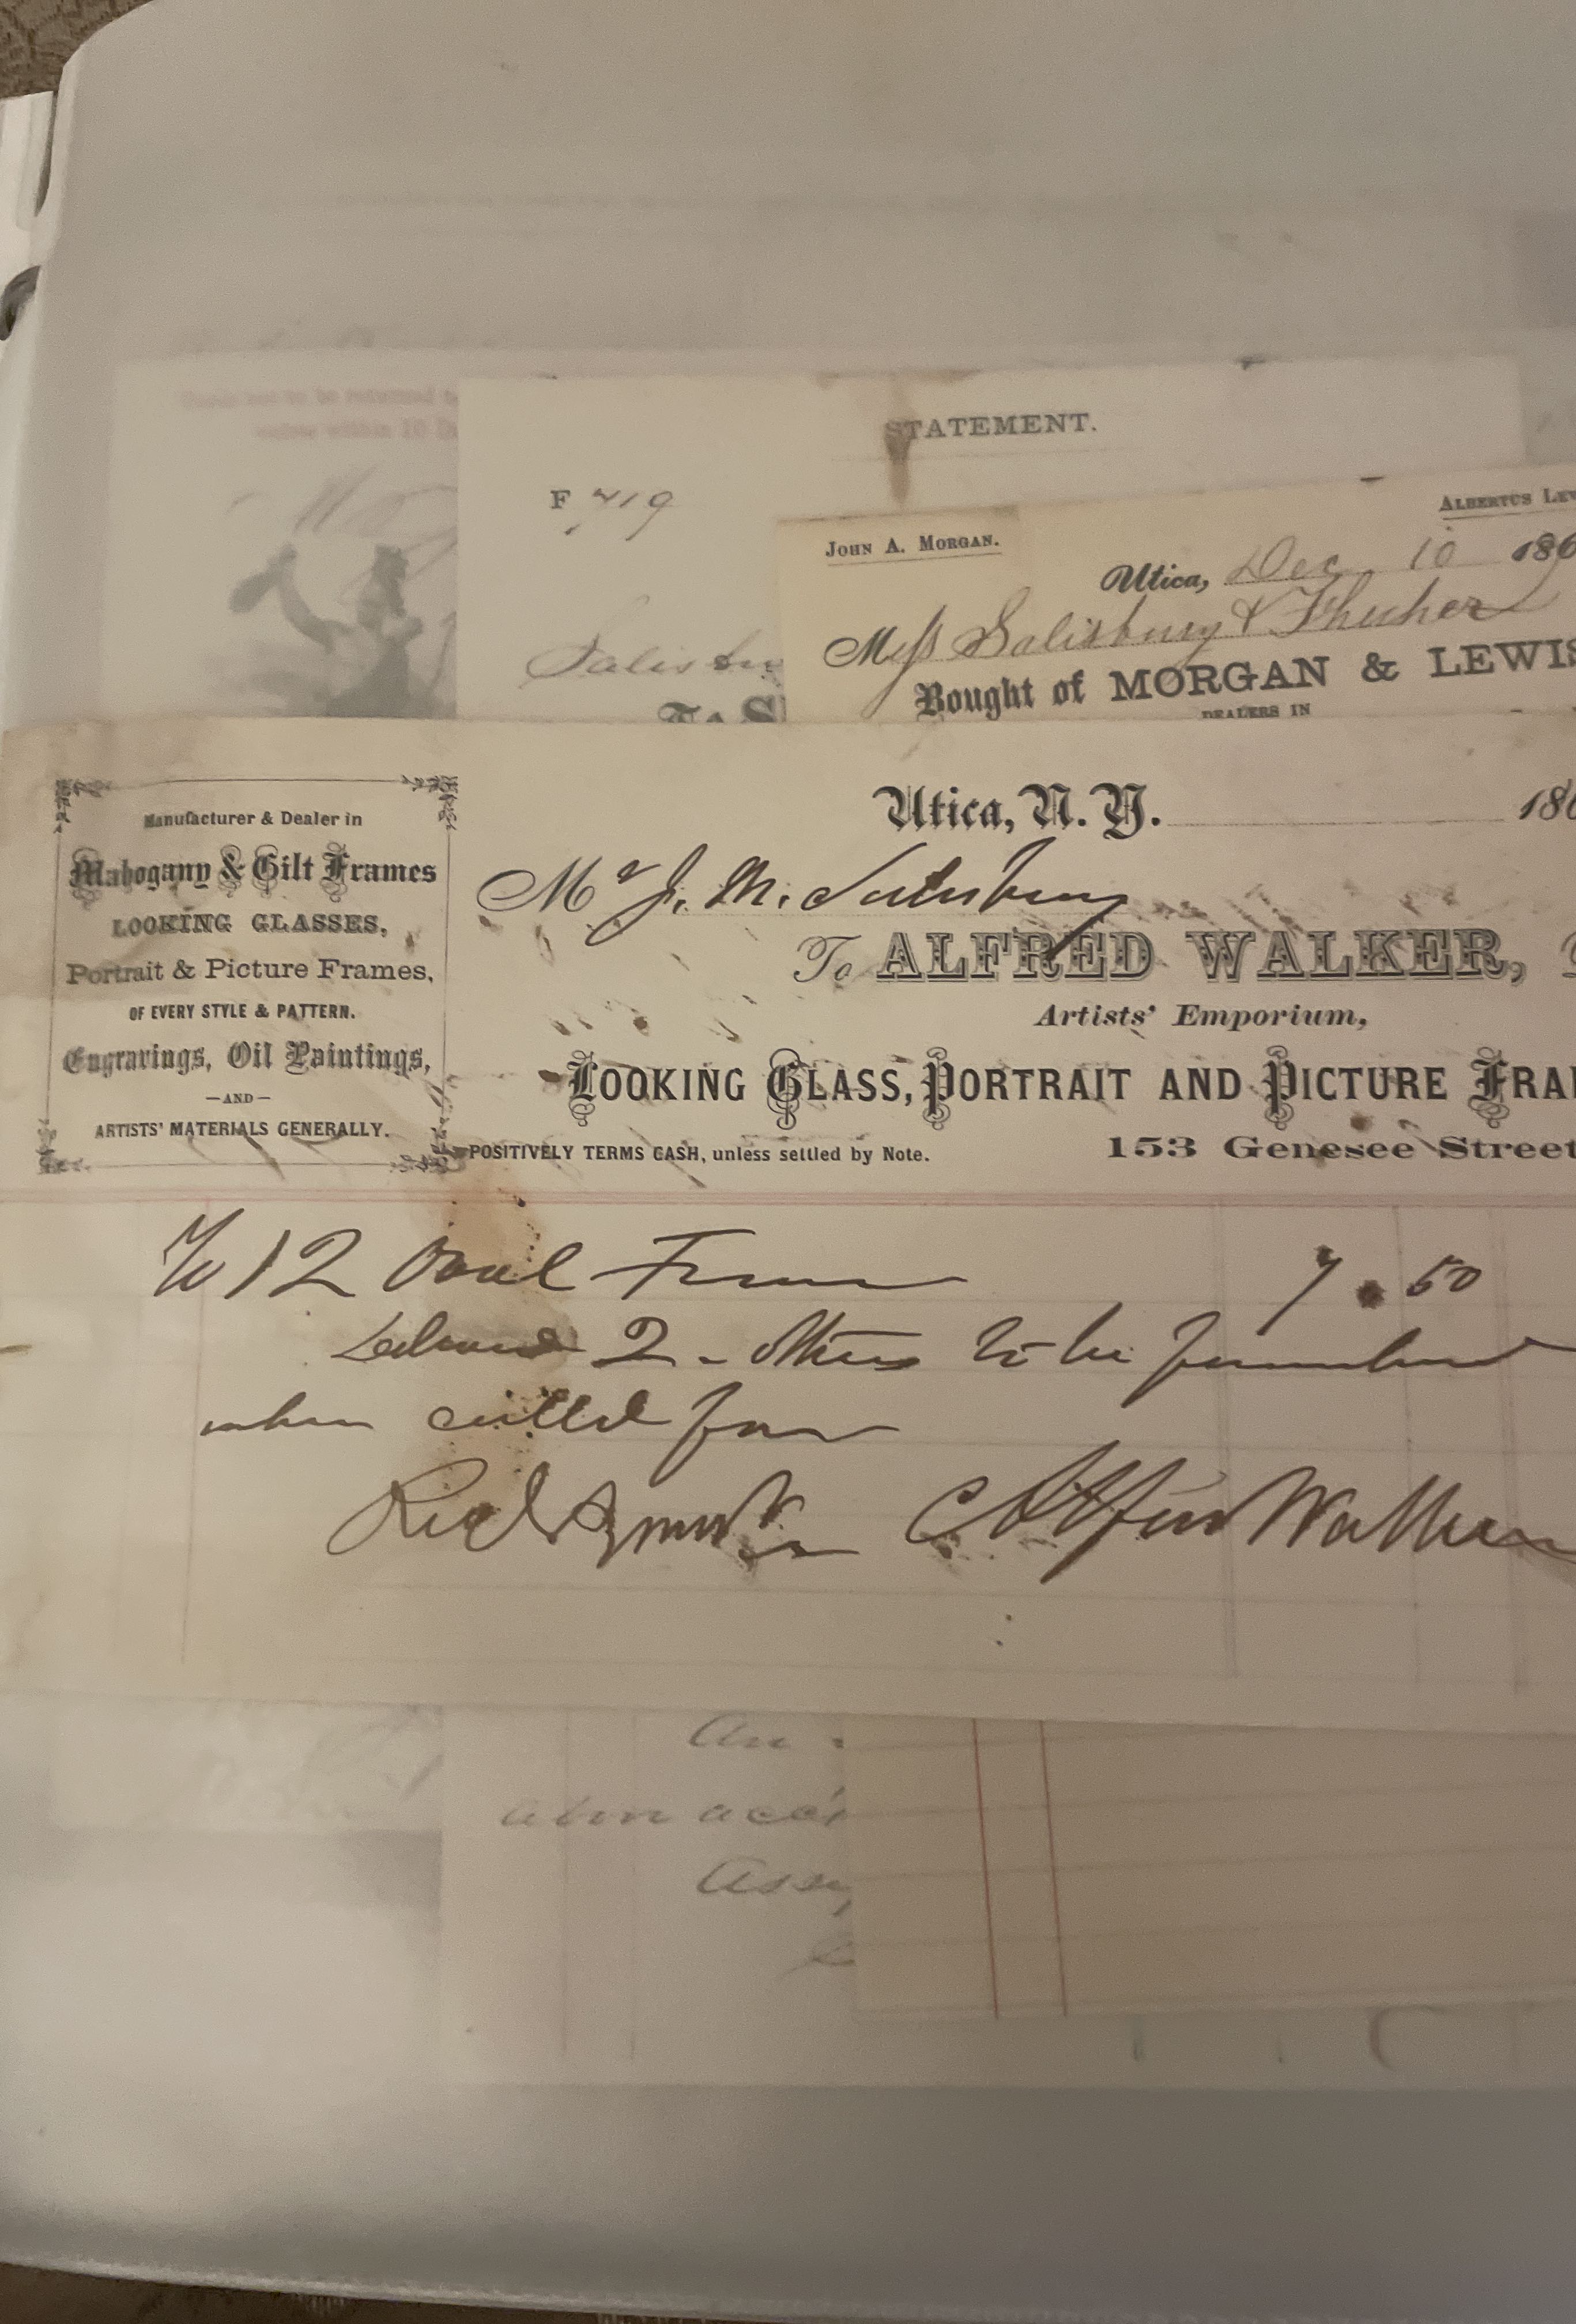 STATEMENT.
F 719
JOHN A. MORGAN.
ALBERTUS LEW
Utica, Dec 10 186
Salisbu
Mess Salisbury &
Bought of MORGAN & LEWIS
DEALERS IN
Utica, N. Y. 186
Manufacturer & Dealer in
Mahogany & Gilt Frames
LOOKING GLASSES,
Portrait & Picture Frames,
OF EVERY STYLE & PATTERN.
Engravings, Oil Paintings,
—AND—
ARTISTS' MATERIALS GENERALLY.
Mr J. M. Salisbury
To ALFRED WALKER,
Artists' Emporium,
LOOKING GLASS, PORTRAIT AND PICTURE FRA
POSITIVELY TERMS CASH, unless settled by Note.
153 Genesee Street
12 Oval Frames 7.50
2 - others to be furnished
when called for
Alfred Walker